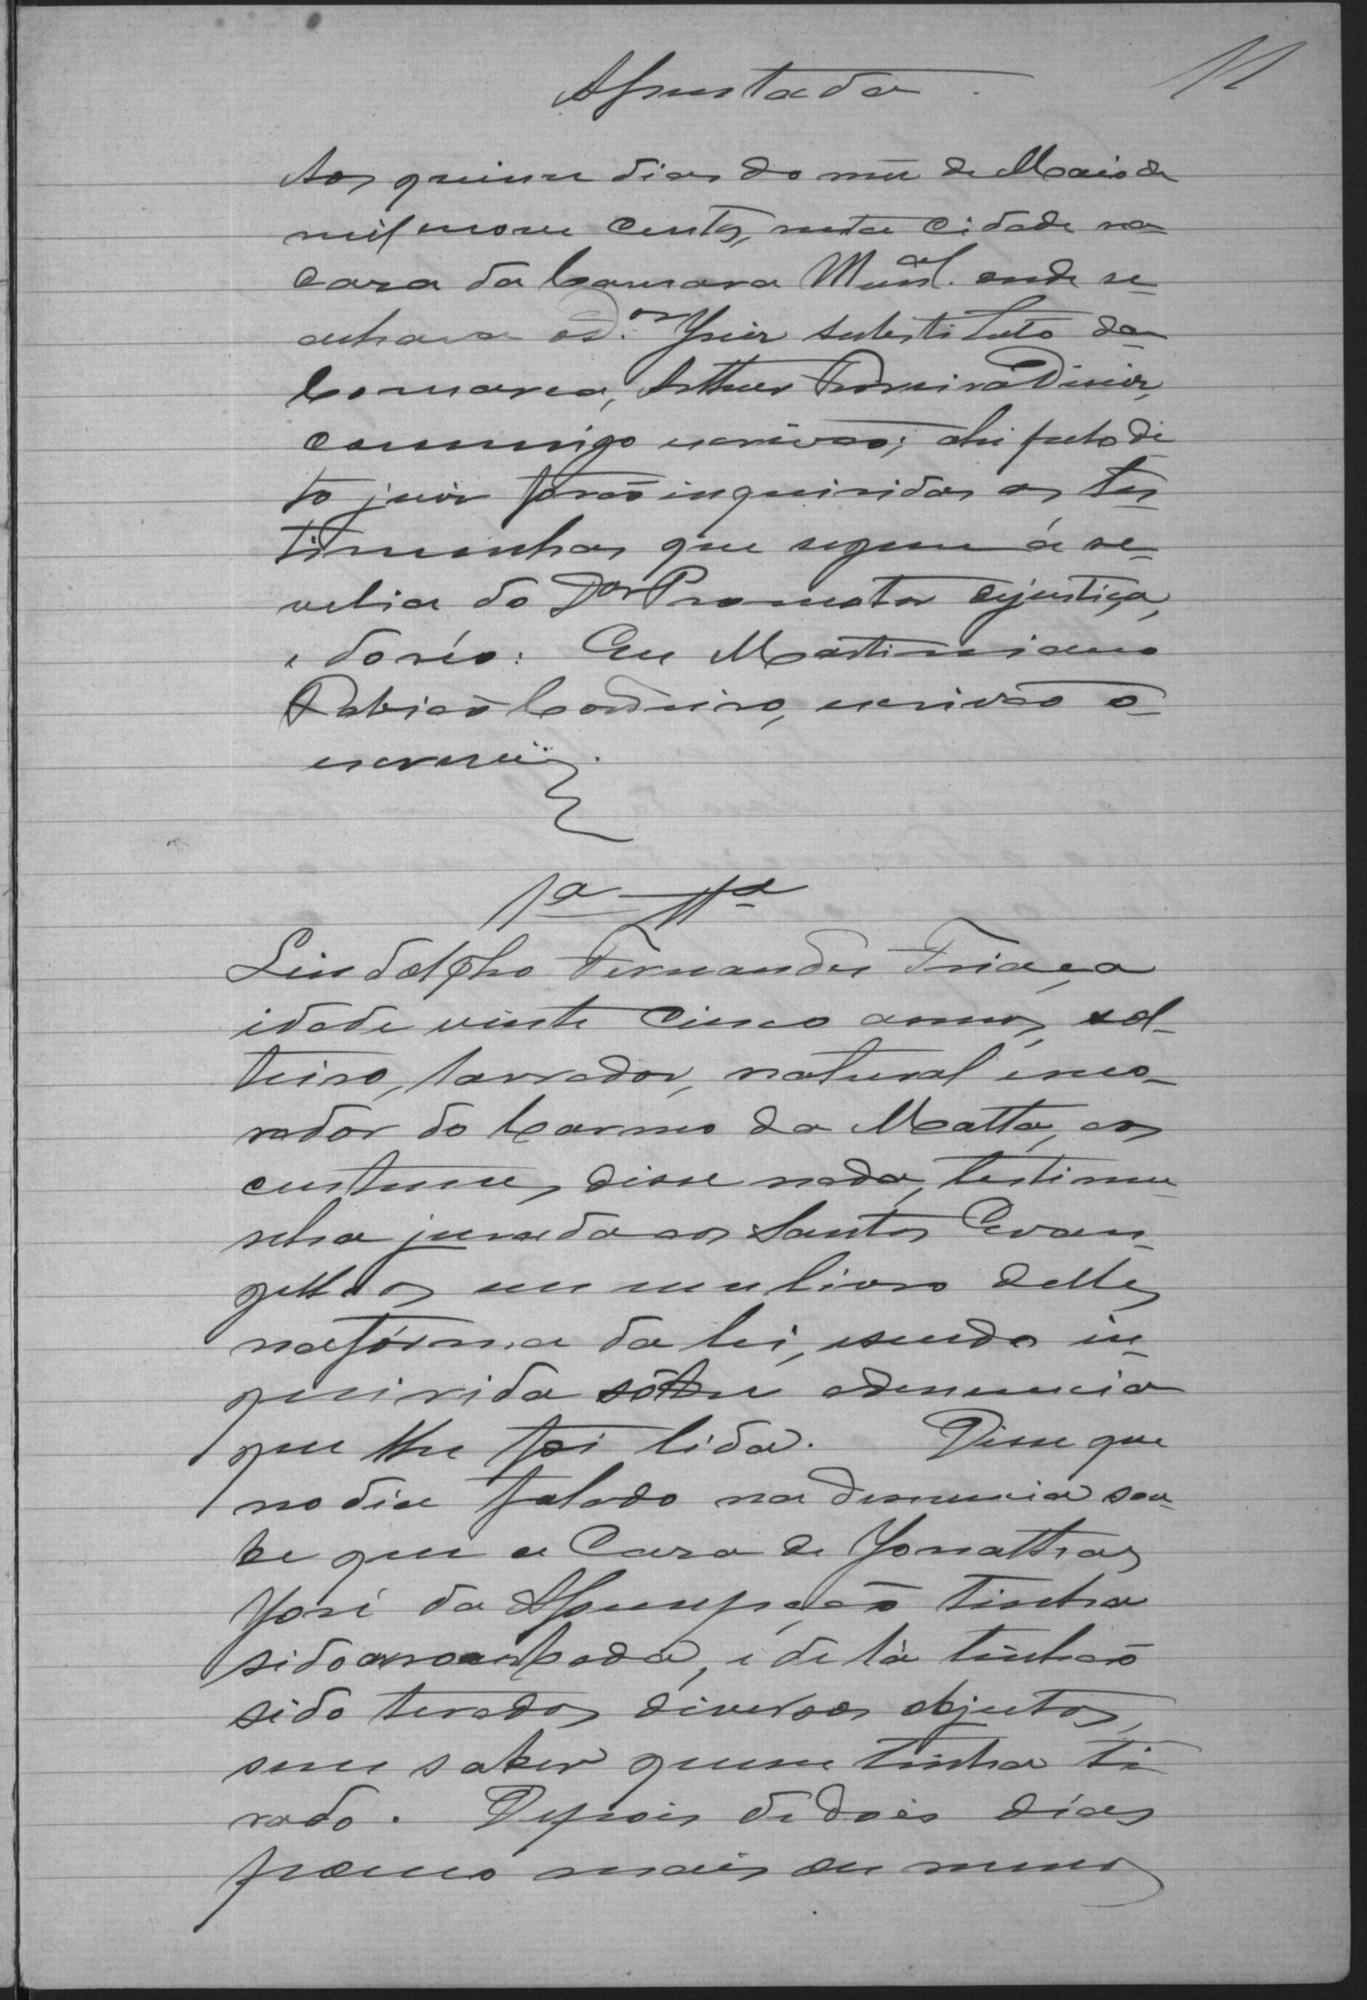 11
Assentada
Aos quinze dias do mez de Maio de
mil nove centos, nesta cidade na
casa da Camara Mun.al onde se
achava o D.or Juiz substituto da
Comarca, Arthur
commigo escrivão; ahi pelo di
to juiz forão inquiridas as tes
timunhas que seguem á re-
velia do Dor Promotor ejustiça,
e do réo: Eu Martiniano
Rabicó Cordeiro, escrivão o
escrevi.
1a Ta
Lindolpho Fernandes França
idade vinte cinco annos, sol-
teiro, lavrador, natural emo-
rador do Carmo da Matta, aos
custumes, disse nada, testimu
nha jurada aos Santos Evan-
gelhos em um livro delles
na fórma da lei, esendo in-
quirida sobre adenuncia
que lhe foi lida. Disse que
no dia falado na denuncia sou-
be que a casa de Jonathas
José da Assumpção tinha
sido arrombada, e de lá tinhão
sido terados diversos objectos,
sem saber quem tinha ti
rado. Depois de dois dias
pouco mais ou menos